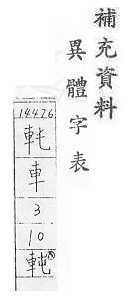 補充資料
異體字表
14426
軞
車
3
10